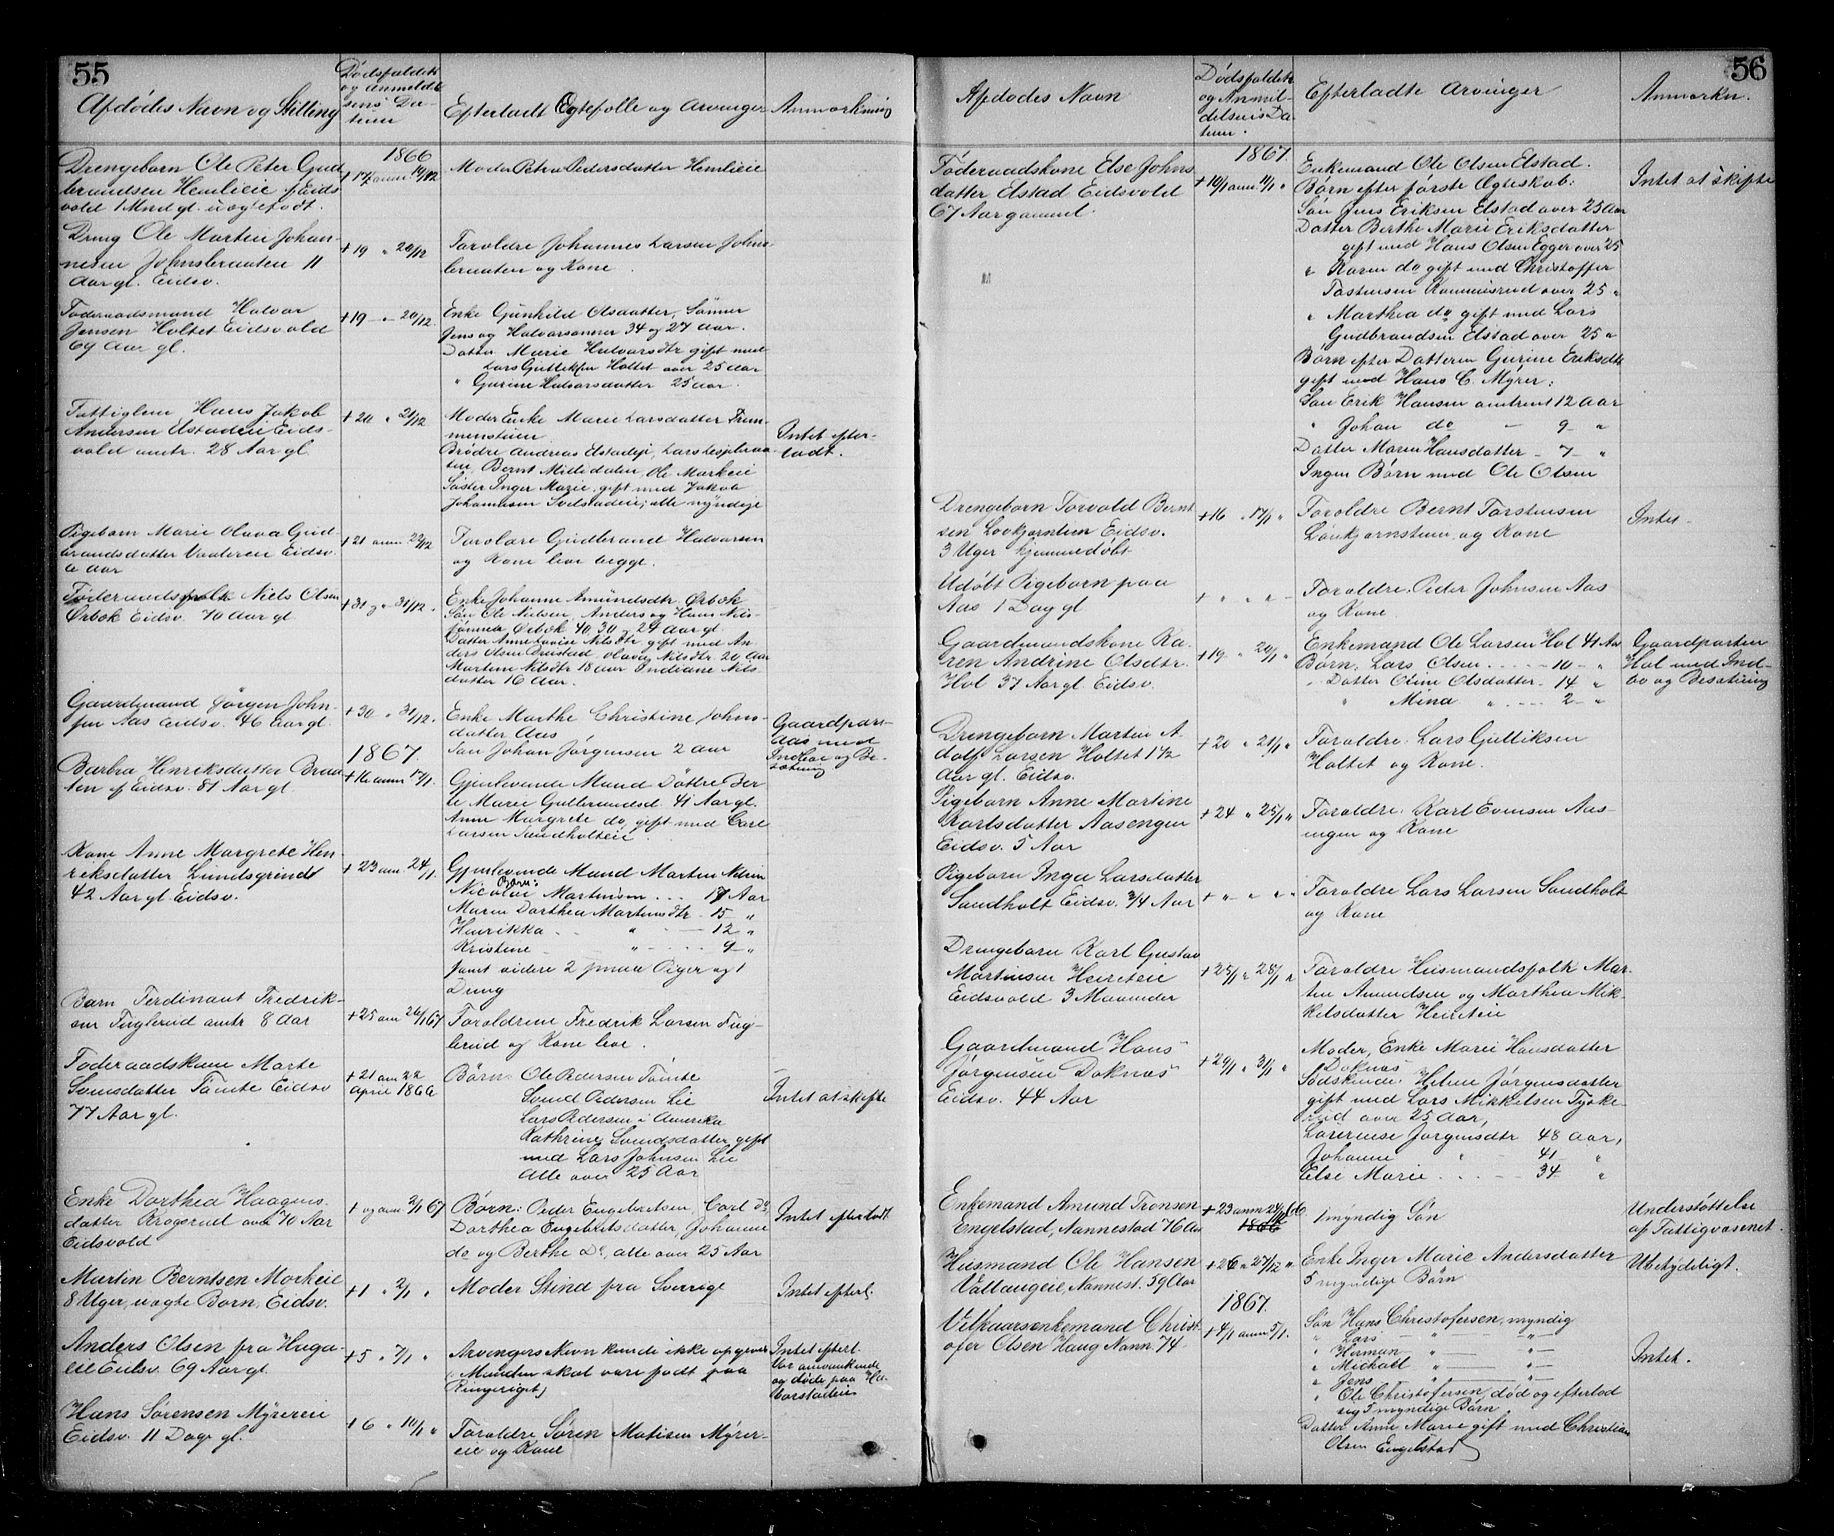 55
Afdødes Navn og Stilling
Dødsfaldets
og Anmeldel-
sens Da-
tum
Efterladt Egtefolle og Arvinger
Anmærkning
1866
Drengebarn Ole Peter Gud
brandsen Hemlieie
Eids
vold 1 Mnd gl. uægtefødt.
Moder Petra Pedersdatter Hemlieie
Dreng Ole Martin Johan-
nesen 11
Aar gl. Eidsv.
+19 " 20/12
Foroldre Johannes Larsen Johns
braaten og Kone.
Føderaadsmand Halvor
Jensen Holtet Eidsvold
69 Aar gl.
+19 - " 20/12
Enke Gunhild Olsdatter, Sønner
Jens og Halvorsønner 34 og 27 Aar.
Datter Marie Halvorsdtr gift med
Lars Gulliksen Holtet over 25 Aar
" Gurine Halvorsdatter 25 Aar.
Fattiglem Hans Jakob
Andersen Elstadeie Eids-
vold amtr. 28 Aar gl.
+20 " 21/12
Moder Enke Marie Larsdatter
Brødre Andreas Elstadeje, Lars
Bernt Ole Morkeie
Søster Inger Marie, gift med Jakob
Johannesen alle myndige
Intet efter-
ladt.
Pigebarn Marie Olava Gud
brandsdatter Eidsv.
Aar
+21 anm 22/12
Foroldre Gudbrand Halvorsen
og Kone leve begge.
Føderaadsfolk Niels Olsen
Ørbæk Eidsv. 70 Aar gl
+31 " 31/12
Enke Johanne Amundsdtr. Ørbæk
Søn Ole Nielsen, Anders og Hans Niel-
sønner Ørbæk 40 30 - 24 Aar gl
Datter Anne Lovise Nilsdtr gift med An-
ders Olsen Olava Nilsdtr 20 Aar
Martine Nilsdtr 18 Aar Indiane Nils-
datter 16 Aar.
Gaardmand Jørgen John-
sen Aas Eidsv. 46 Aar gl.
+30 " 31/12.
Enke Marthe Christine Johns-
datter Aas
Søn Johan Jørgensen 2 Aar
Gaardpart
Aas med
Indboe og Be-
sætning
1867.
Barbra Henriksdatter
af Eidsv. 81 Aar gl.
+16 anm 17/1.
Gjenlevende Mand Døttre Ber-
te Marie Gulbrandsd. 41 Aar gl.
Anne Margrete do, gift med Carl
Larsen Sandholteie
Kone Anne Margrete Hen
riksdatter Lundsgrind
42 Aar gl. Eidsv.
+23 am 24/1.
Gjenlevende Mand Morten Nilsen
Børn:
Nicolai Martinsen . . . 17 Aar
Maren Dorthea Martinsdtr - 15 "
Henrikka - - " - - 12 "
Kristine - " - - - 9 "
samt videre 2 smaa Piger og 1
Dreng
Barn Ferdinant Fredrik-
sen Fuglerud amtr 8 Aar
+25 am 26/1 67
Foroldrene Fredrik Larsen Fug-
lerud og Kone leve.
Føderaadskone Marte
Svensdatter Tømte Eidsv
77 Aar gl.
+21 am 22
April 1866
Børn: Ole Pedersen Tømte
Svend Pedersen Lie
Lars Pedersen i Amerika
Kathrine Svendsdatter gift
med Lars Johnsen Lie
Alle over 25 Aar
Intet at skifte
Enke Dorthea Haagens-
datter Krogerud over 70 Aar
Eidsvold
+ og anm 2/1 67
Børn: Peder Engebretsen, Carl do
Dorthea Engebretsdatter, Johanne
do og Berthe Do, alle over 25 Aar
Intet efterladt
Martin Berntsen Morkeie
8 Uger, uægte Børn, Eidsv.
+1 " 2/1 "
Moder Stind fra Sverrige
Intet efterl.
Anders Olsen fra Haga-
eie Eidsv. 69 Aar gl.
+5 " 7/1 "
Arvingers Navn kunde ikke opgives
(Manden skal være født paa
Ringeriget)
Intet efterl.
Var omvankende
og døde paa
Hans Sørensen Myrereie
Eidsv. 11 Dage gl.
+6 " 10/1 "
Foroldre Søren Matisen Myrer-
eie og Kone
56
Afdødes Navn
Dødsfaldets
og Anmel-
delsens Da-
tum.
Efterladte Arvinger
Anmærkn.
1867.
Føderaadskone Else Johns
datter Elstad Eidsvold
67 Aar gammel.
+10/1 anm 11/1 "
Enkemand Ole Olsen Elstad.
Børn efter første Ægteskab:
Søn Jens Eriksen Elstad over 25 Aar
Datter Berthe Marie Eriksdatter
gift med Hans Olsen Egger over 25
" Karen do gift med Christoffer
over 25 "
" Marthea do gift med Lars
Gudbrandsen Elstad over 25 "
Børn efter Datteren Gurine Eriksdtr
gift med Hans C. Myrer:
Søn Erik Hansen omtrent 12 Aar
" Johan do - 9 "
Datter Maren Hansdatter - 7 - "
Ingen Børn med Ole Olsen
Intet at skifte
Drengebarn Torvald Bernt
sen Eidsv.
3 Uger hjemmedøbt
+16 " 17/1 "
Foroldre Bernt Torstensen
og Kone
Intet
Udøbt Pigebarn paa
Aas 1 Dag gl
+ " " " -
Foroldre Peder Johnsen Aas
og Kone
Gaardmandskone Ka-
ren Andrine Olsdtr.
Hol 37 Aar gl. Eidsv.
+19 - " 20/1 "
Enkemand Ole Larsen Hol 41 Aar
Børn. Lars Olsen . . . . - 10 - "
" Datter Oline Olsdatter - 14 "
" Mina " . - - - 2 - "
Gaardparten
Hol med Ind-
bo og Besætning
Drengebarn Martin A-
dolf Larsen Holtet 1 1/2
Aar gl. Eidsv.
+20 " 21/1 "
Foroldre. Lars Gulliksen
Holtet og Kone.
Pigebarn Anne Martine
Karlsdatter Aasengen
Eidsv. 5 Aar
+24 " 25/1 "
Foroldre. Karl Evensen Aas-
engen og Kone
Pigebarn Inga Larsdatter
Sandholt Eidsv. 3/4 Aar
+ " - " " "
Foroldre Lars Larsen Sandholt
og Kone
Drengebarn Karl Gustav
Martinsen
Eidsvold 3 Maaneder
+25/1 " 28/1 "
Foroldre Husmandsfolk Mar-
tin Amundsen og Marthea Mik-
kelsdatter
Gaardmand Hans
Jørgensen Doknæs
Eidsv. 44 Aar
+29/1 " 31/1 "
Moder, Enke Marie Hansdatter
Doknæs
Sødskende. Helene Jørgensdatter
gift med Lars Mikkelsen Tyske-
rud over 25 Aar,
Lorense Jørgensdtr 48 Aar,
Johanne " - 41 - "
Else Marie . . - - 34 - "
Enkemand Amund Tronsen
Engelstad, Nannestad 76 Aar
+23 anm 24/12 66
1866
1 myndig Søn
Understøttelse
af Fattigvæsenet.
Husmand Ole Hansen
Vallaugeie, Nannest. 59 Aar
+26 " 27/12 "
Enke Inger Marie Andersdatter
5 myndige Børn
Ubetydeligt.
1867.
Velkaarsenkemand Christ-
ofer Olsen Haug Nann. 74
+4/1 anm 5/1.
Søn Hans Christofersen, myndig
" Lars - " - - " -
" Herman - " - - " -
" Michael " - - " -
" Jens " - - " -
" Ole Christofersen, død og efterlod
sig 5 myndige Børn
Datter Anne Marie gift med Christian
Olsen Engelstad
Intet.